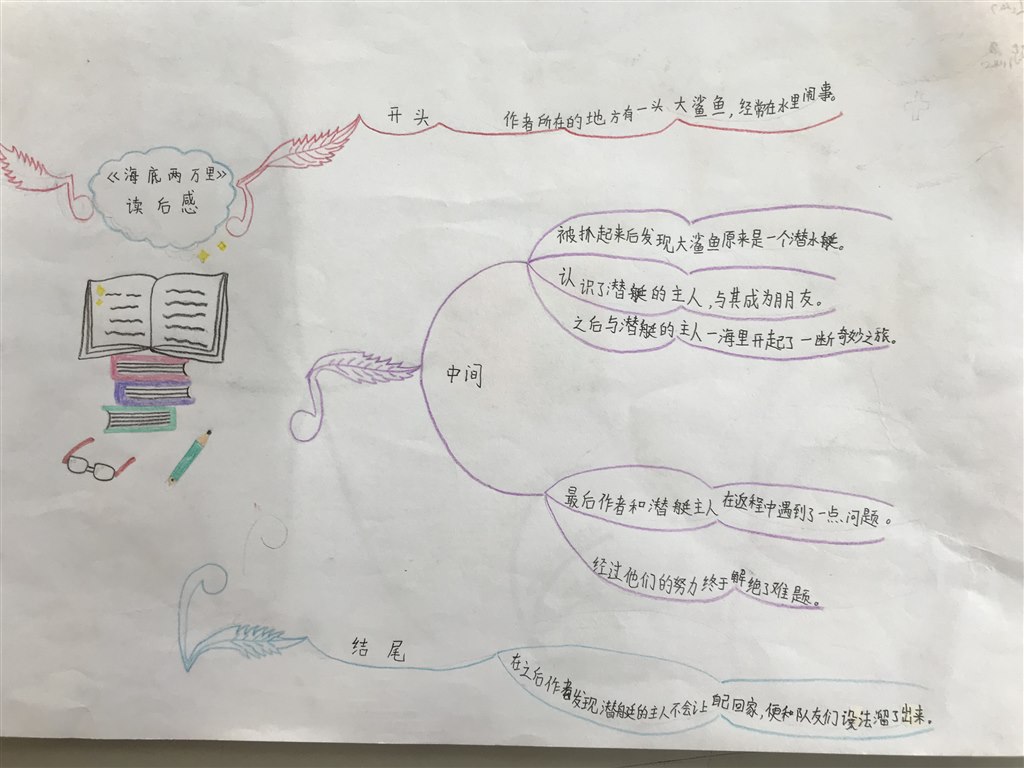 《海底两万里》
读后感
开头
作者所在的地方有一头大鲨鱼，经常在水里闹事。
中间
被抓起来后发现大鲨鱼原来是一个潜水艇。
认识了潜艇的主人，与其成为朋友。
之后与潜艇的主人一海里开起了一断奇妙之旅。
最后作者和潜艇主人在返程中遇到了一点问题。
经过他们的努力终于解绝了难题。
结尾
在之后作者发现潜艇的主人不会让自己回家，便和队友们设法溜了出来。